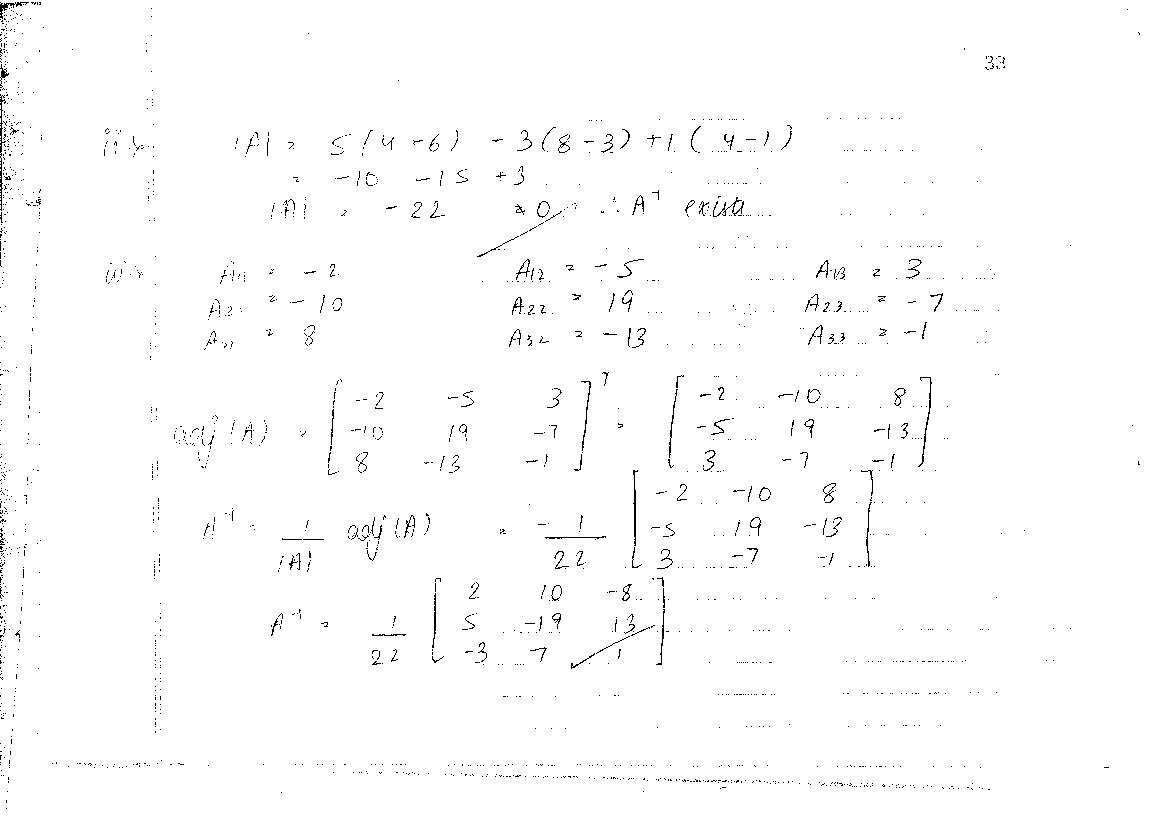 33
ii) |A| = 5(4-6) -3(8-3) +1(4-1)
= -10 -15 +3
|A| = -22 ≠ 0 ∴ A⁻¹ exists
A₁₁ = -2 A₁₂ = -5 A₁₃ = 3
A₂₁ = -10 A₂₂ = 19 A₂₃ = -7
A₃₁ = 8 A₃₂ = -13 A₃₃ = -1
adj(A) = [ -2 -5 3 ]ᵀ = [ -2 -10 8 ]
[ -10 19 -7 ] [ -5 19 -13 ]
[ 8 -13 -1 ] [ 3 -7 -1 ]
A⁻¹ = 1/|A| adj(A) = -1/22 [ -2 -10 8 ]
[ -5 19 -13 ]
[ 3 -7 -1 ]
A⁻¹ = 1/22 [ 2 10 -8 ]
[ 5 -19 13 ]
[ -3 7 1 ]